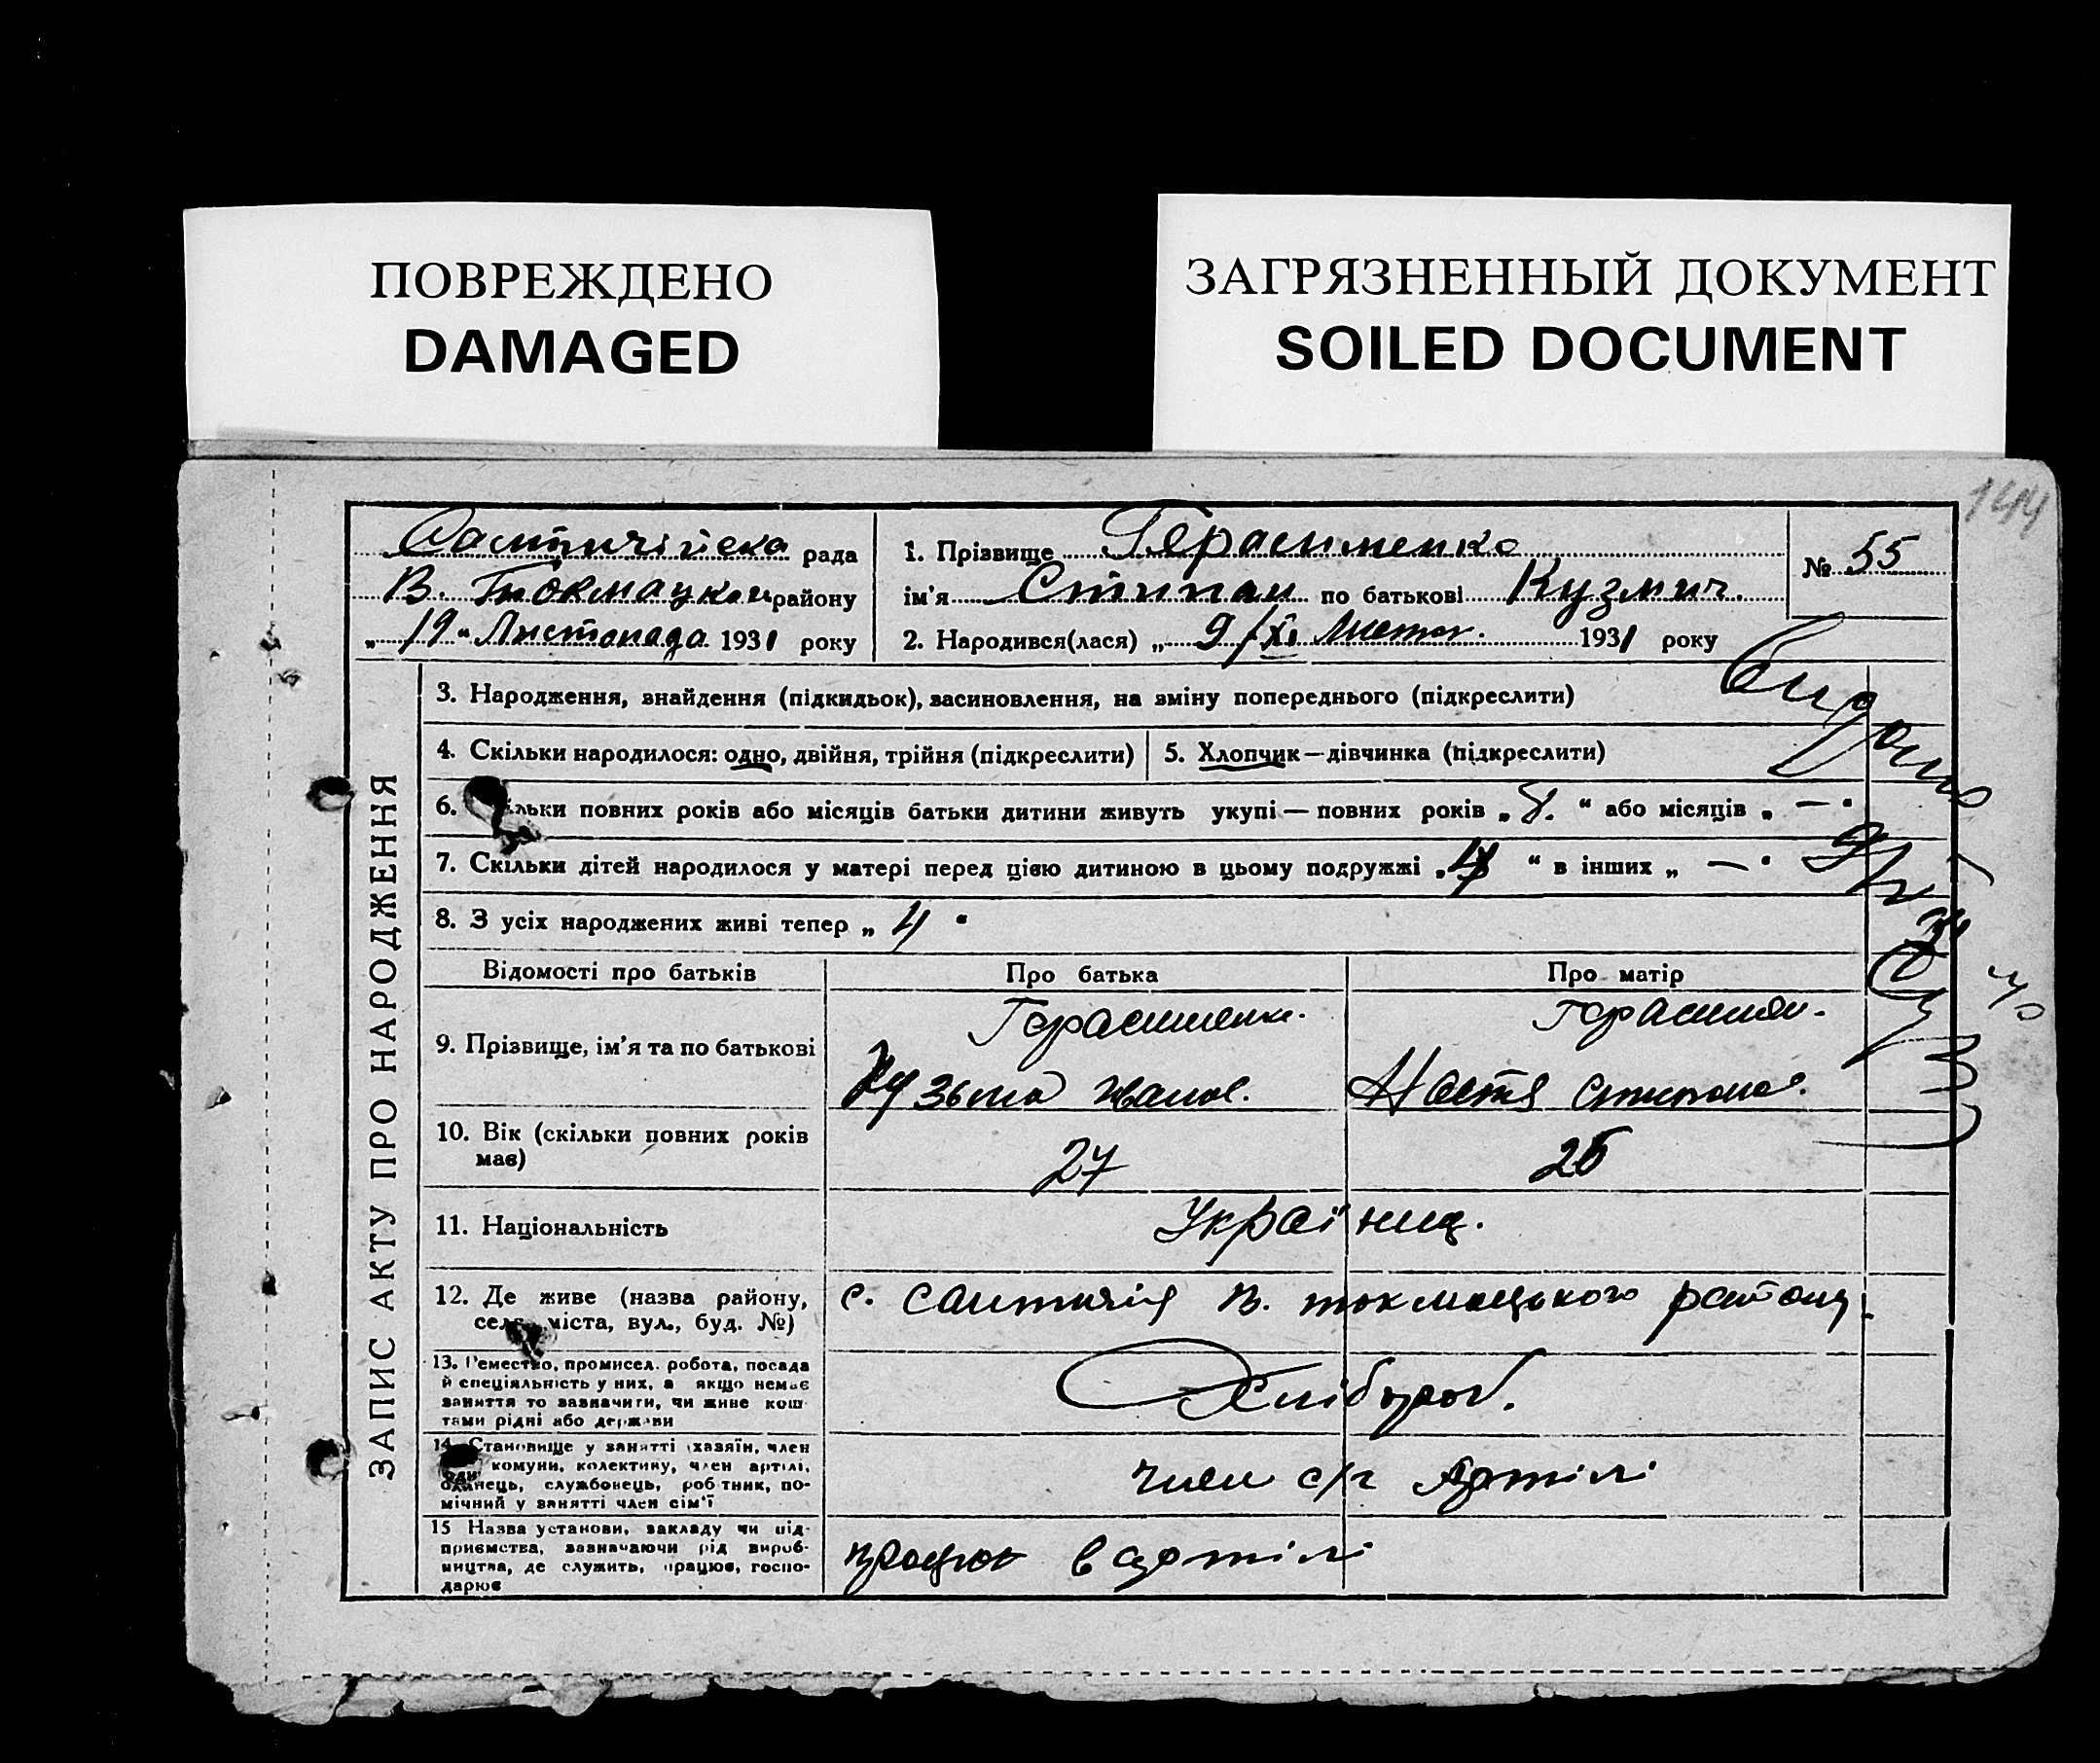 ПОВРЕЖДЕНО
DAMAGED
ЗАГРЯЗНЕННЫЙ ДОКУМЕНТ
SOILED DOCUMENT
144
рада
В. Токмацьк району
„ 19 “ Листопада 1931 року
1. Прізвище Герасименко
ім'я Стипан по батькові Кузмич.
2. Народився(лася) „ 9/XI Листоп. 1931 року
№ 55
ЗАПИС АКТУ ПРО НАРОДЖЕННЯ
3. Народження, знайдення (підкидьок), засиновлення, на зміну попереднього (підкреслити)
4. Скільки народилося: одно, двійня, трійня (підкреслити)
5. Хлопчик—дівчинка (підкреслити)
6. ільки повних років або місяців батьки дитини живуть укупі — повних років „ 8. “ або місяців „ — "
7. Скільки дітей народилося у матері перед цією дитиною в цьому подружжі „ “ в інших „ — "
8. З усіх народжених живі тепер „ 4 “
Відомості про батьків
Про батька
Про матір
9. Прізвище, ім'я та по батькові
Герасименк.
Кузьма Иванов.
Герасимен.
Настя Стипанов.
10. Вік (скільки повних років
має)
27
26
11. Національність
Україниц.
12. Де живе (назва району,
села, міста, вул., буд. №)
с. Салтичія В. токмацького району.
13. Ремество, промисел. робота, посада
й спеціяльність у них, а якщо немає
заняття то зазначити, чи живе кош-
тами рідні або держави
Хлібороб.
14. Становище у занятті (хазяїн, член
комуни, колективу, член артілі,
одинець, службовець, робітник, по-
мічний у занятті член сім'ї
член с/г Артілі
15 Назва установи, закладу чи під-
приємства, зазначаючи рід вироб-
ництва, де служить, працює, госпо-
дарює
працює в артілі